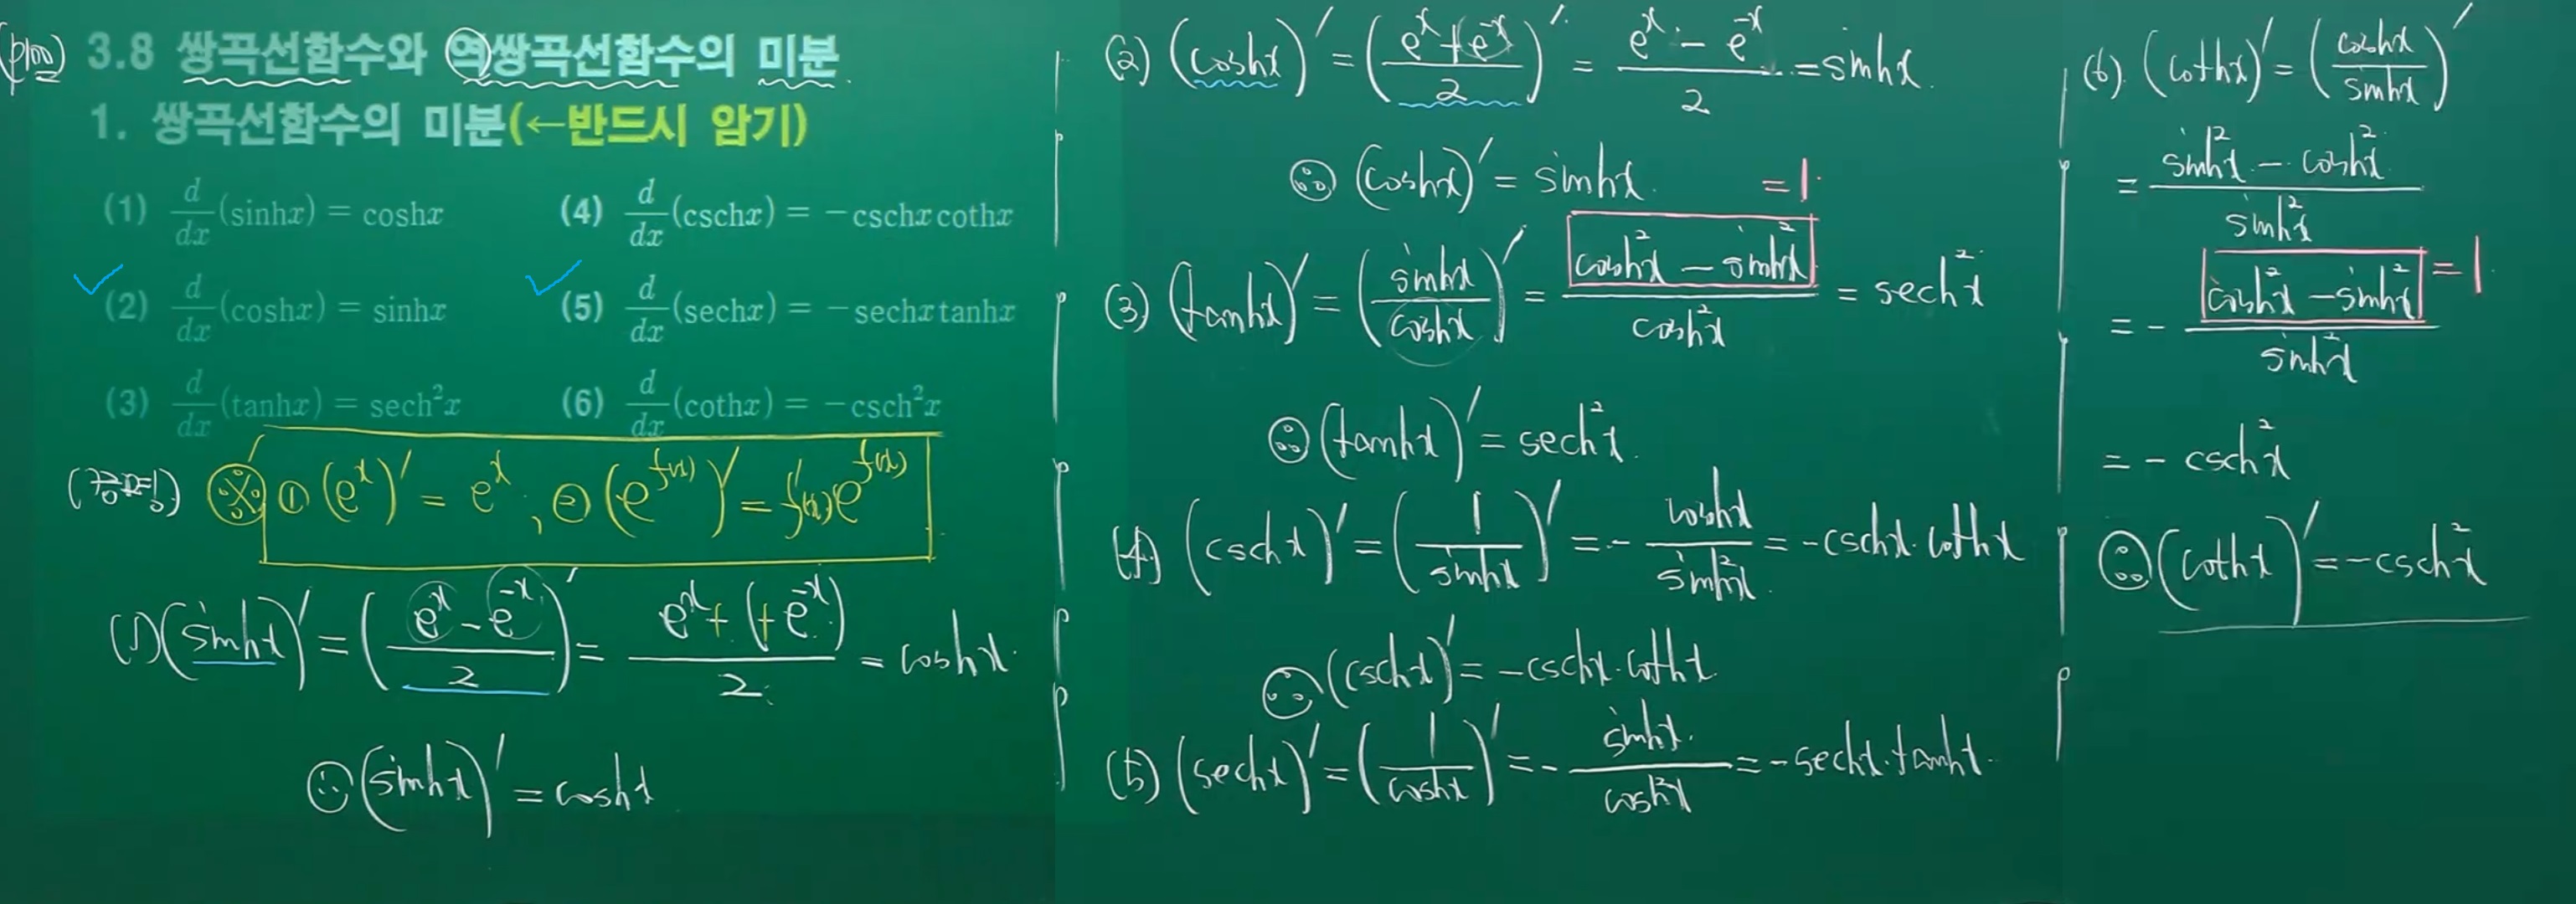 (p100) 3.8 쌍곡선함수와 역쌍곡선함수의 미분
1. 쌍곡선함수의 미분(←반드시 암기)
(1) d/dx (sinhx) = coshx
(2) d/dx (coshx) = sinhx
(3) d/dx (tanhx) = sech²x
(4) d/dx (cschx) = −cschx cothx
(5) d/dx (sechx) = −sechx tanhx
(6) d/dx (cothx) = −csch²x
※ ① (e^x)′ = e^x ; ② (e^f(x))′ = f′(x)e^f(x)
(1) (sinhx)′ = ((e^x − e^−x)/2)′ = (e^x + (+e^−x))/2 = coshx.
∴ (sinhx)′ = coshx
(2) (coshx)′ = ((e^x + e^−x)/2)′ = (e^x − e^−x)/2 = sinhx.
∴ (coshx)′ = sinhx.
= 1
(3) (tanhx)′ = (sinhx/coshx)′ = (cosh²x − sinh²x)/cosh²x = sech²x
∴ (tanhx)′ = sech²x.
(4) (cschx)′ = (1/sinhx)′ = − coshx/sinh²x = −cschx·cothx
∴ (cschx)′ = −cschx·cothx.
(5) (sechx)′ = (1/coshx)′ = − sinhx/cosh²x = −sechx·tanhx.
(6) (cothx)′ = (coshx/sinhx)′
= (sinh²x − cosh²x)/sinh²x
= − (cosh²x − sinh²x)/sinh²x
= 1.
= − csch²x
∴ (cothx)′ = −csch²x